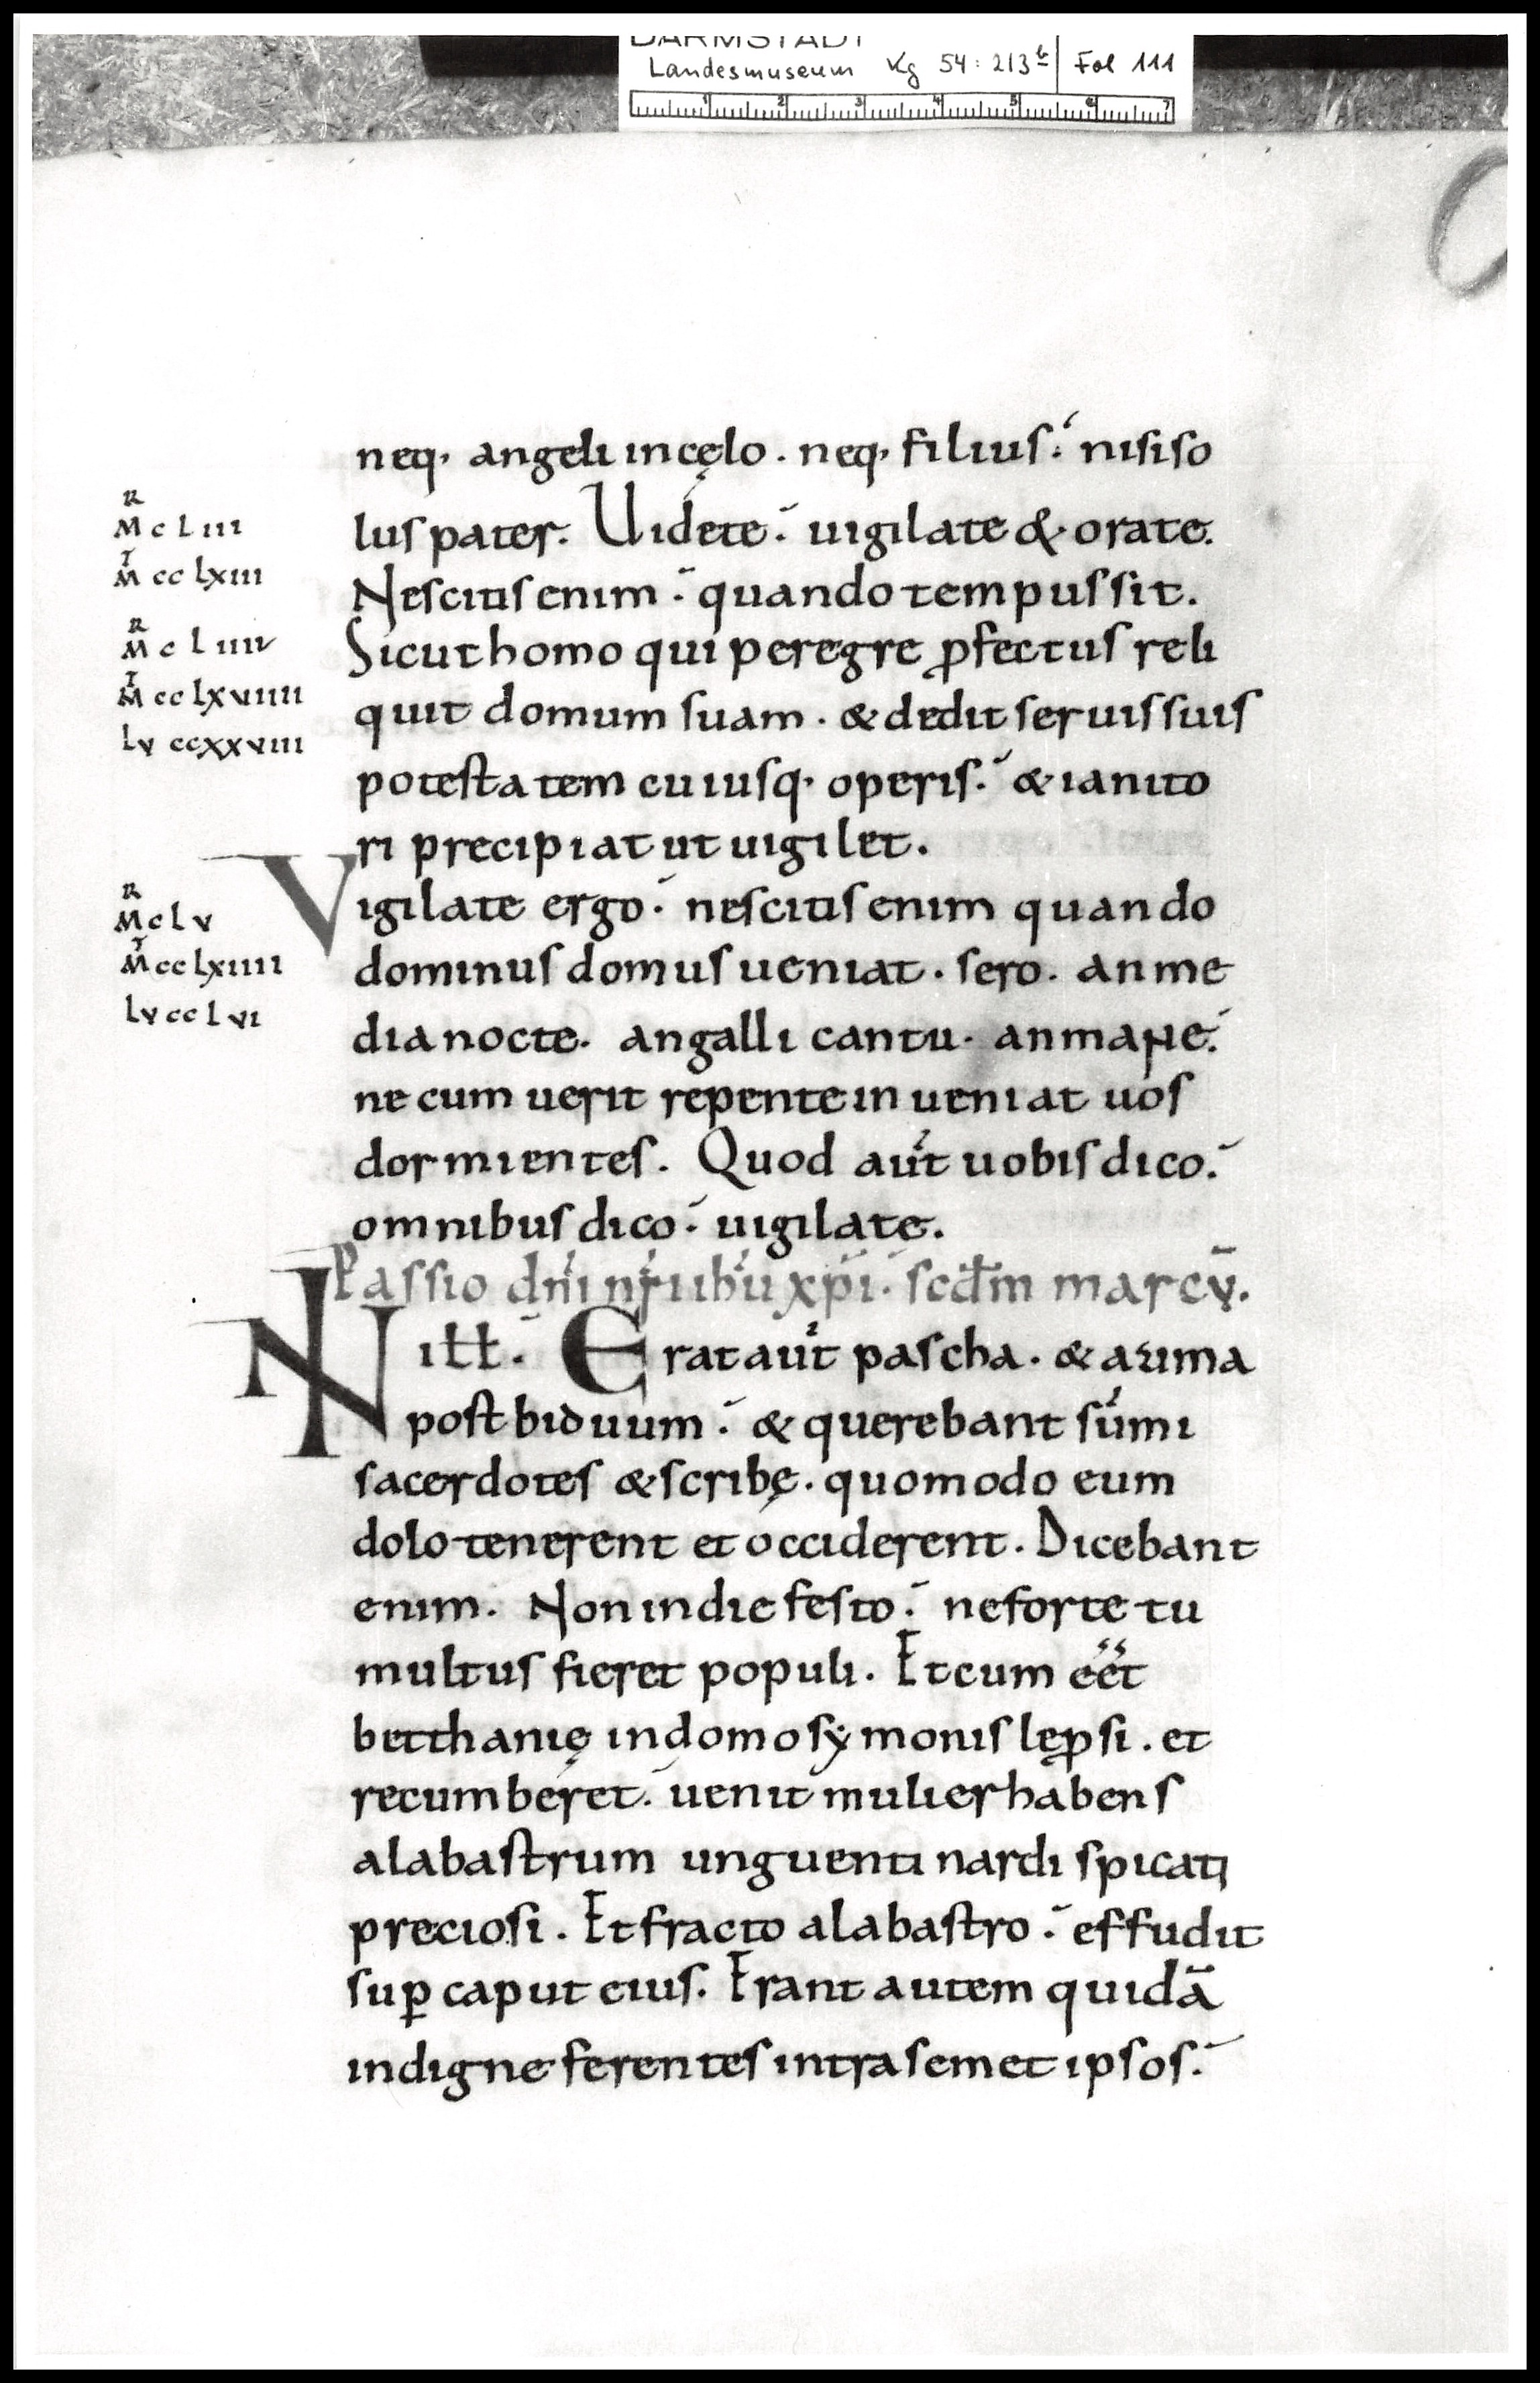 DARMSTADT
Landesmuseum Kg 54:213b Fol 111
1 2 3 4 5 6 7
neq· angeli incęlo. neq· filius: nisiso
R
M c L iii
lus pater. Uidete: uigilate & orate.
T
M cc lxiii
Nescitis enim: quando tempus sit.
R
M c L iiii
Sicut homo qui peregre ꝓfectus reli
T
M cc lxviiii
quit domum suam. & dedit seruis suis
Lv ccxxviii
potestatem cuiusq· operis: & ianito
ri precipiat ut uigilet.
R
M c L v
Vigilate ergo: nescitis enim quando
T
M cc lxiiii
dominus domus ueniat. sero. an me
Lv cc L vi
dia nocte. an galli cantu. an mane:
ne cum uerit repente inueniat uos
dormientes. Quod aut̄ uobis dico:
omnibus dico: uigilate.
Passio dn̄i nr̄i ihū xp̄i. scdm̄ marcū.
IN ill̄. Erat aut̄ pascha. & azima
post biduum: & querebant sūmi
sacerdotes & scribę. quomodo eum
dolo tenerent et occiderent. Dicebant
enim. Non in die festo: ne forte tu
multus fieret populi. Et cum eēt
betthanię in domo sẏmonis leꝓsi. et
recumberet: uenit mulier habens
alabastrum unguenti nardi spicati
preciosi. Et fracto alabastro: effudit
suꝑ caput eius. Erant autem quidā
indigne ferentes intra semet ipsos: